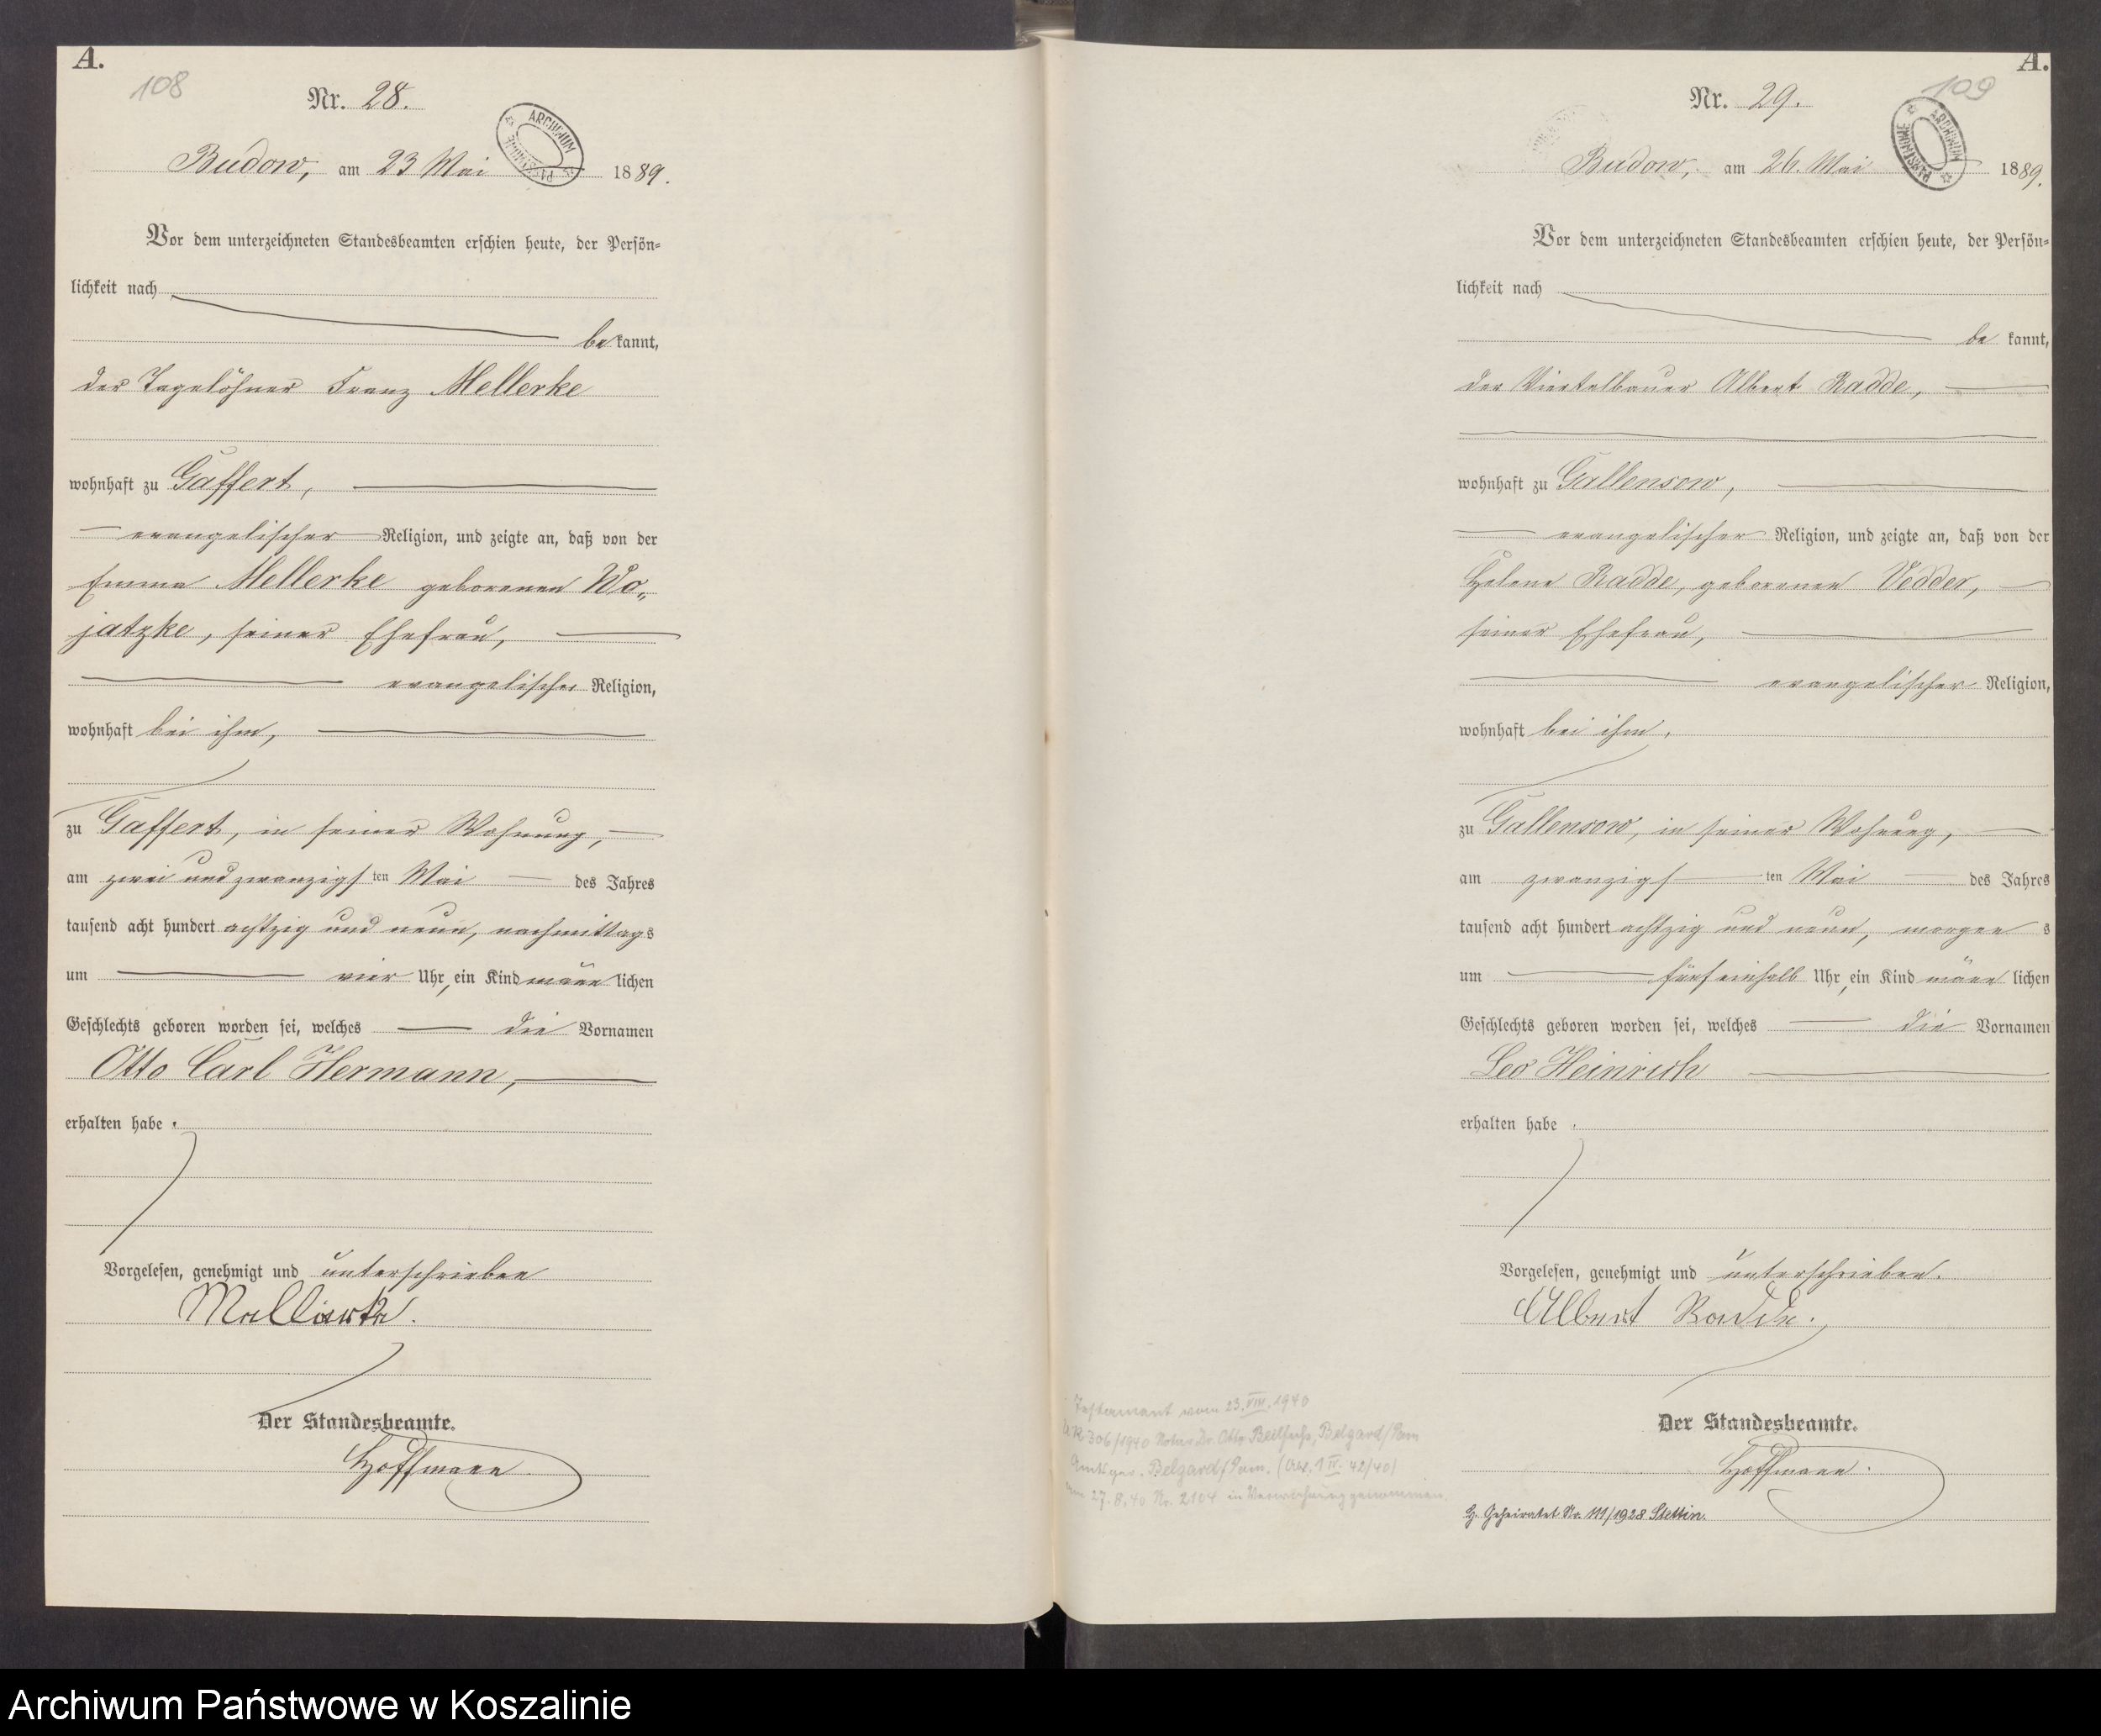 A.
108
Nr. 28.
ARCHIWUM PAŃSTWOWE
Budow, am 23 Mai 1889.
Vor dem unterzeichneten Standesbeamten erschien heute, der Persön=
lichkeit nach
be kannt,
der Tagelöhner Franz Mellerke
wohnhaft zu Gaffert,
evangelischer Religion, und zeigte an, daß von der
Emma Mellerke geborenen Wo„
jatzke, seiner Ehefrau,
evangelischer Religion,
wohnhaft bei ihm,
zu Gaffert, in seiner Wohnung,
am zwei und zwanzigsten Mai des Jahres
tausend acht hundert achtzig und neun, nachmittags
um vier Uhr, ein Kind männlichen
Geschlechts geboren worden sei, welches die Vornamen
Otto Carl Hermann,
erhalten habe.
Vorgelesen, genehmigt und unterschrieben
Der Standesbeamte.
Hoffmann.
A.
109
Nr. 29.
ARCHIWUM PAŃSTWOWE
Budow, am 26. Mai 1889.
Vor dem unterzeichneten Standesbeamten erschien heute, der Persön=
lichkeit nach
be kannt,
der Viertelbauer Albert Radde,
wohnhaft zu Gallensow,
evangelischer Religion, und zeigte an, daß von der
Helene Radde, geborenen Vedder,
seiner Ehefrau,
evangelischer Religion,
wohnhaft bei ihm,
zu Gallensow, in seiner Wohnung,
am zwanzigsten Mai des Jahres
tausend acht hundert achtzig und neun, morgens
um fünf einhalb Uhr, ein Kind männlichen
Geschlechts geboren worden sei, welches die Vornamen
Leo Heinrich
erhalten habe.
Vorgelesen, genehmigt und unterschrieben.
Albert Radde.
Der Standesbeamte.
Hoffmann.
H. Geheiratet Nr. 111/1928 Stettin.
Testament vom 23.VIII.1940
306/1940 Notar Dr. Otto Belgard/Pom
Amtsger. Belgard/Pom. 42/40)
27.8.40 Nr. 2104 in Verwahrung genommen.
Archiwum Państwowe w Koszalinie